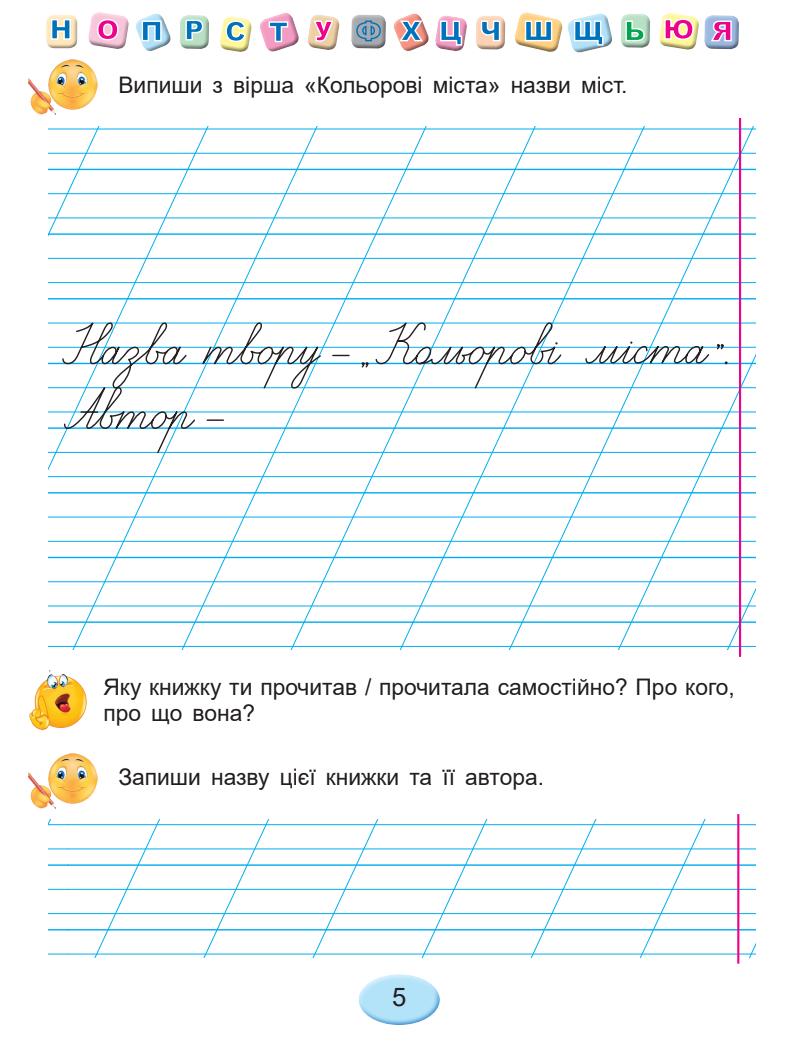 Н О П Р С Т У Ф Х Ц Ч Ш Щ Ь Ю Я
Випиши з вірша «Кольорові міста» назви міст.
Назва твору – „Кольорові міста”.
Автор –
Яку книжку ти прочитав / прочитала самостійно? Про кого,
про що вона?
Запиши назву цієї книжки та її автора.
5